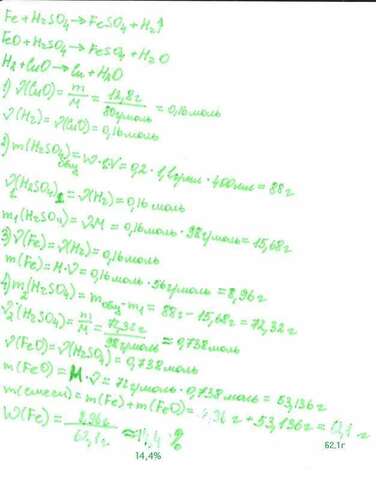 Fe + H2SO4 → FeSO4 + H2↑
FeO + H2SO4 → FeSO4 + H2O
H2 + CuO → Cu + H2O
1) ν(CuO) = m/M = 12,8г/80г/моль = 0,16моль
ν(H2) = ν(CuO) = 0,16моль
2) m(H2SO4)общ = W·ρ·V = 0,2 · 1,1г/мл · 400мл = 88г
ν1(H2SO4) = ν(H2) = 0,16 моль
m1(H2SO4) = νM = 0,16моль · 98г/моль = 15,68г
3) ν(Fe) = ν(H2) = 0,16моль
m(Fe) = M·ν = 0,16моль · 56г/моль = 8,96г
4) m2(H2SO4) = mобщ - m1 = 88г - 15,68г = 72,32г
ν2(H2SO4) = m/M = 72,32г/98г/моль = 0,738моль
ν(FeO) = ν(H2SO4) = 0,738моль
m(FeO) = M·ν = 72г/моль · 0,738моль = 53,136г
m(смеси) = m(Fe) + m(FeO) = 8,96г + 53,136г = 62,1г
W(Fe) = 8,96г/62,1г = 14,4%
14,4%
62,1г